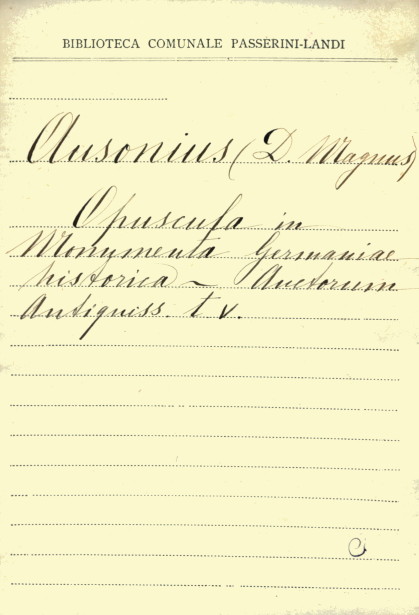 BIBLIOTECA COMUNALE PASSERINI-LANDI
Ausonius (D. Magnus)
Opuscula in
Monumenta Germaniae
historica ~ Auctorum
Antiquiss. t v.
C